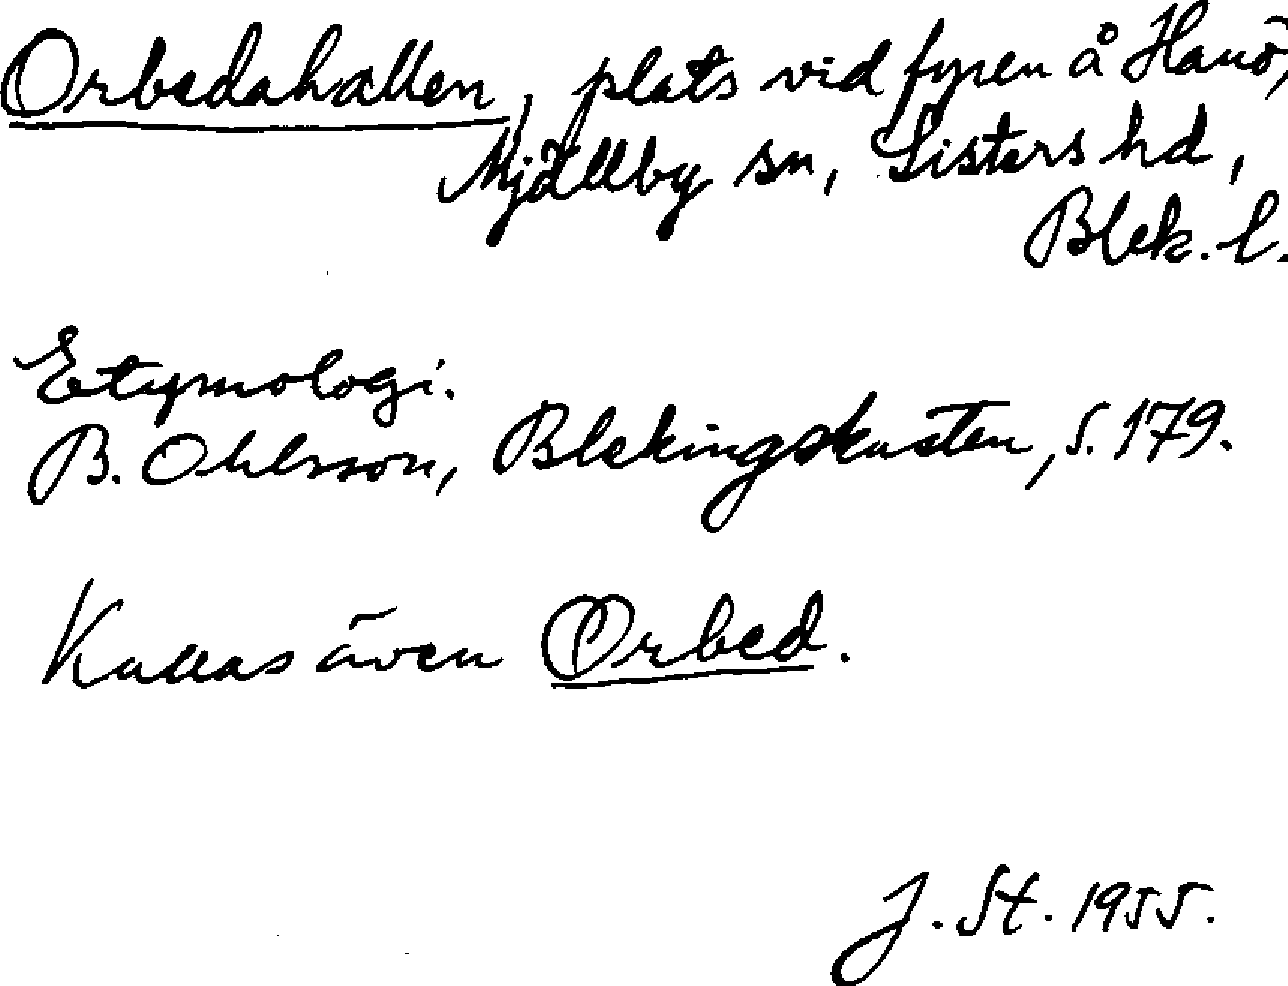 Orbedahallen, plats vid fyren å Hanö,
Mjällby sn, Listers hd,
Blek. l.
Etymologi.
B. Ohlsson, Blekingskusten, s. 179.
Kallas även Orbed.
J. St. 1955.